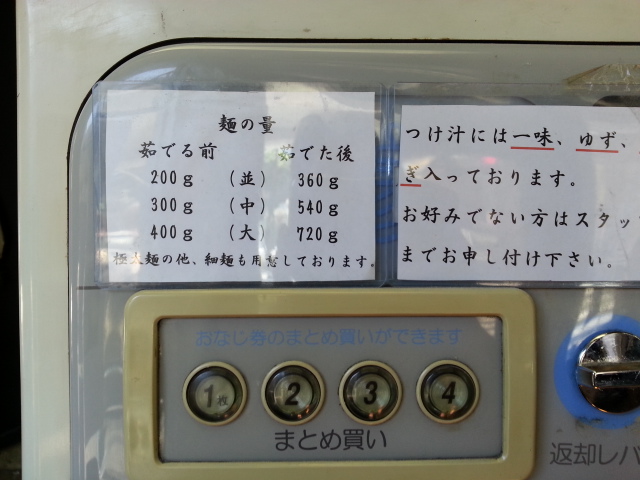 麺の量
茹でる前 茹でた後
200g (並) 360g
300g (中) 540g
400g (大) 720g
極太麺の他、細麺も用意しております。
つけ汁には一味、ゆず、
ぎ入っております。
お好みでない方はスタッ
までお申し付け下さい。
おなじ券のまとめ買いができます
1枚 2 3 4
まとめ買い
返却レバ